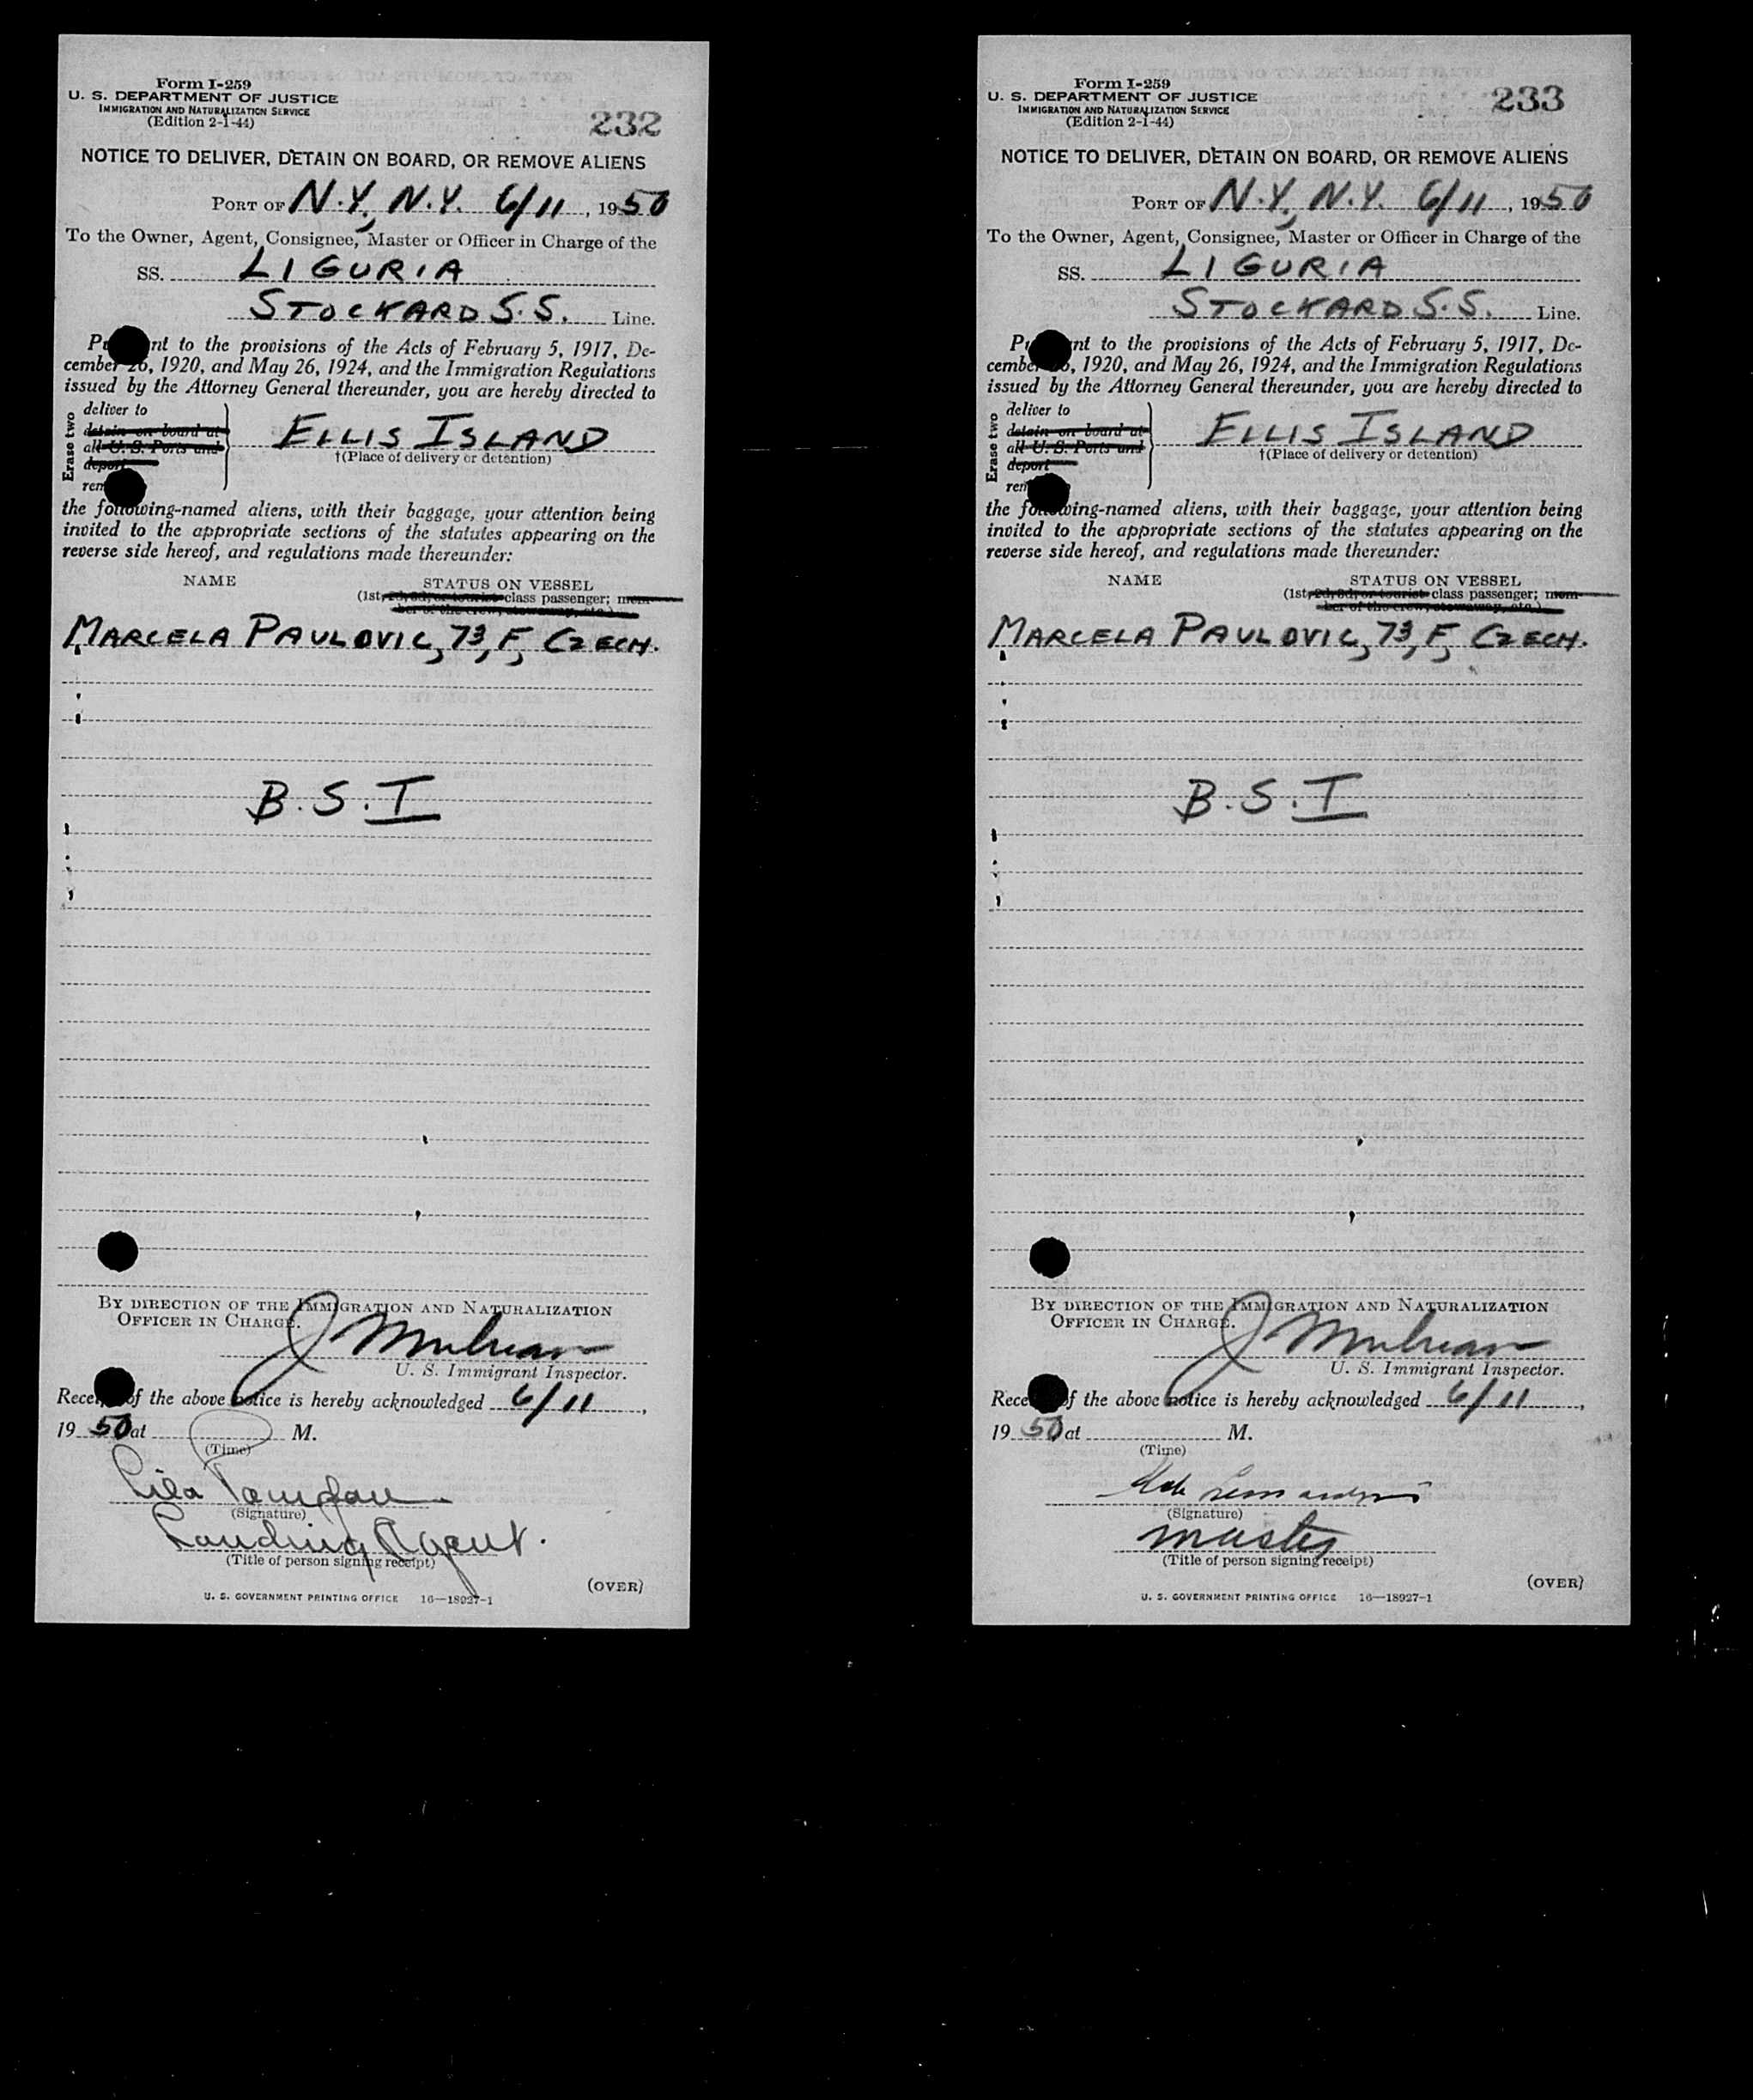 Form I-259
U. S. DEPARTMENT OF JUSTICE
IMMIGRATION AND NATURALIZATION SERVICE
(Edition 2-1-44)
232
NOTICE TO DELIVER, DETAIN ON BOARD, OR REMOVE ALIENS
PORT OF N.Y., N.Y. 6/11, 1950
To the Owner, Agent, Consignee, Master or Officer in Charge of the
SS. LIGURIA
STOCKARD S.S. Line.
nt to the provisions of the Acts of February 5, 1917, De-
cember 26, 1920, and May 26, 1924, and the Immigration Regulations
issued by the Attorney General thereunder, you are hereby directed to
Erase two
deliver to
detain on board at
all U. S. Ports and
deport
ELLIS ISLAND
†(Place of delivery or detention)
the following-named aliens, with their baggage, your attention being
invited to the appropriate sections of the statutes appearing on the
reverse side hereof, and regulations made thereunder:
NAME
STATUS ON VESSEL
(1st, 2d, 3d, or tourist class passenger; mem-
ber of the crew, stowaway, etc.)
MARCELA PAULOVIC, 73, F, CZECH.
B.S.I
BY DIRECTION OF THE IMMIGRATION AND NATURALIZATION
OFFICER IN CHARGE.
U. S. Immigrant Inspector.
of the above notice is hereby acknowledged 6/11,
1950 at M.
(Time)
(Signature)
Landing Agent.
(Title of person signing receipt)
(OVER)
U. S. GOVERNMENT PRINTING OFFICE 16—18927-1
Form I-259
U. S. DEPARTMENT OF JUSTICE
IMMIGRATION AND NATURALIZATION SERVICE
(Edition 2-1-44)
233
NOTICE TO DELIVER, DETAIN ON BOARD, OR REMOVE ALIENS
PORT OF N.Y., N.Y. 6/11, 1950
To the Owner, Agent, Consignee, Master or Officer in Charge of the
SS. LIGURIA
STOCKARD S.S. Line.
nt to the provisions of the Acts of February 5, 1917, De-
cember 26, 1920, and May 26, 1924, and the Immigration Regulations
issued by the Attorney General thereunder, you are hereby directed to
Erase two
deliver to
detain on board at
all U. S. Ports and
deport
ELLIS ISLAND
†(Place of delivery or detention)
the following-named aliens, with their baggage, your attention being
invited to the appropriate sections of the statutes appearing on the
reverse side hereof, and regulations made thereunder:
NAME
STATUS ON VESSEL
(1st, 2d, 3d, or tourist class passenger; mem-
ber of the crew, stowaway, etc.)
MARCELA PAULOVIC, 73, F, CZECH.
B.S.I
BY DIRECTION OF THE IMMIGRATION AND NATURALIZATION
OFFICER IN CHARGE.
U. S. Immigrant Inspector.
of the above notice is hereby acknowledged 6/11,
1950 at M.
(Time)
(Signature)
master
(Title of person signing receipt)
(OVER)
U. S. GOVERNMENT PRINTING OFFICE 16—18927-1